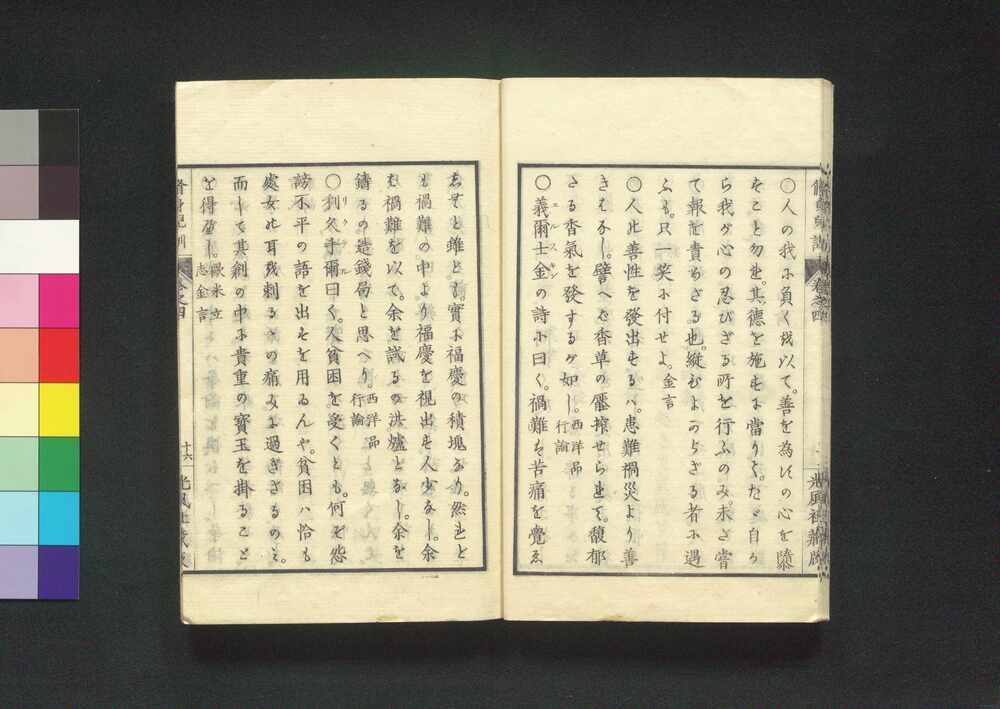 〇人の我ふ負く我以て。善を為すの心を隳
をこと勿れ。其德を施すよ當りて。たゞ自か
ら我が心の忍びざる所を行ふのみ。未ざ嘗
て報を責めざる也。縦むよからざる者ふ遇
ふも。只一笑ふ付せよ。金言
〇人此善性を發出するハ。患難禍災より善
きはなし。譬へば香草の壓搾せられて。馥郁
たる香氣を發するが如し。西洋品行論
〇義爾士金の詩ふ曰く。禍難を苦痛を覺ゑ
エルスキン
しむと雖ども。實ふ福慶の積塊なり。然れど
も禍難の中より福慶を視出す人少なし。余
も禍難を以て。余を試るの洪爐となし。余を
鑄るの造錢局と思へり。西洋品行論
〇利久手爾曰く。人貧困を受くとも。何ぞ怨
リクテル
謗不平の語を出すを用ゐんや。貧困ハ恰も
處女此耳我刺るゝの痛みよ過ぎざるのミ。
而して其創の中ふ貴重の寶玉を掛ること
を得べし。歐米立志金言
十六